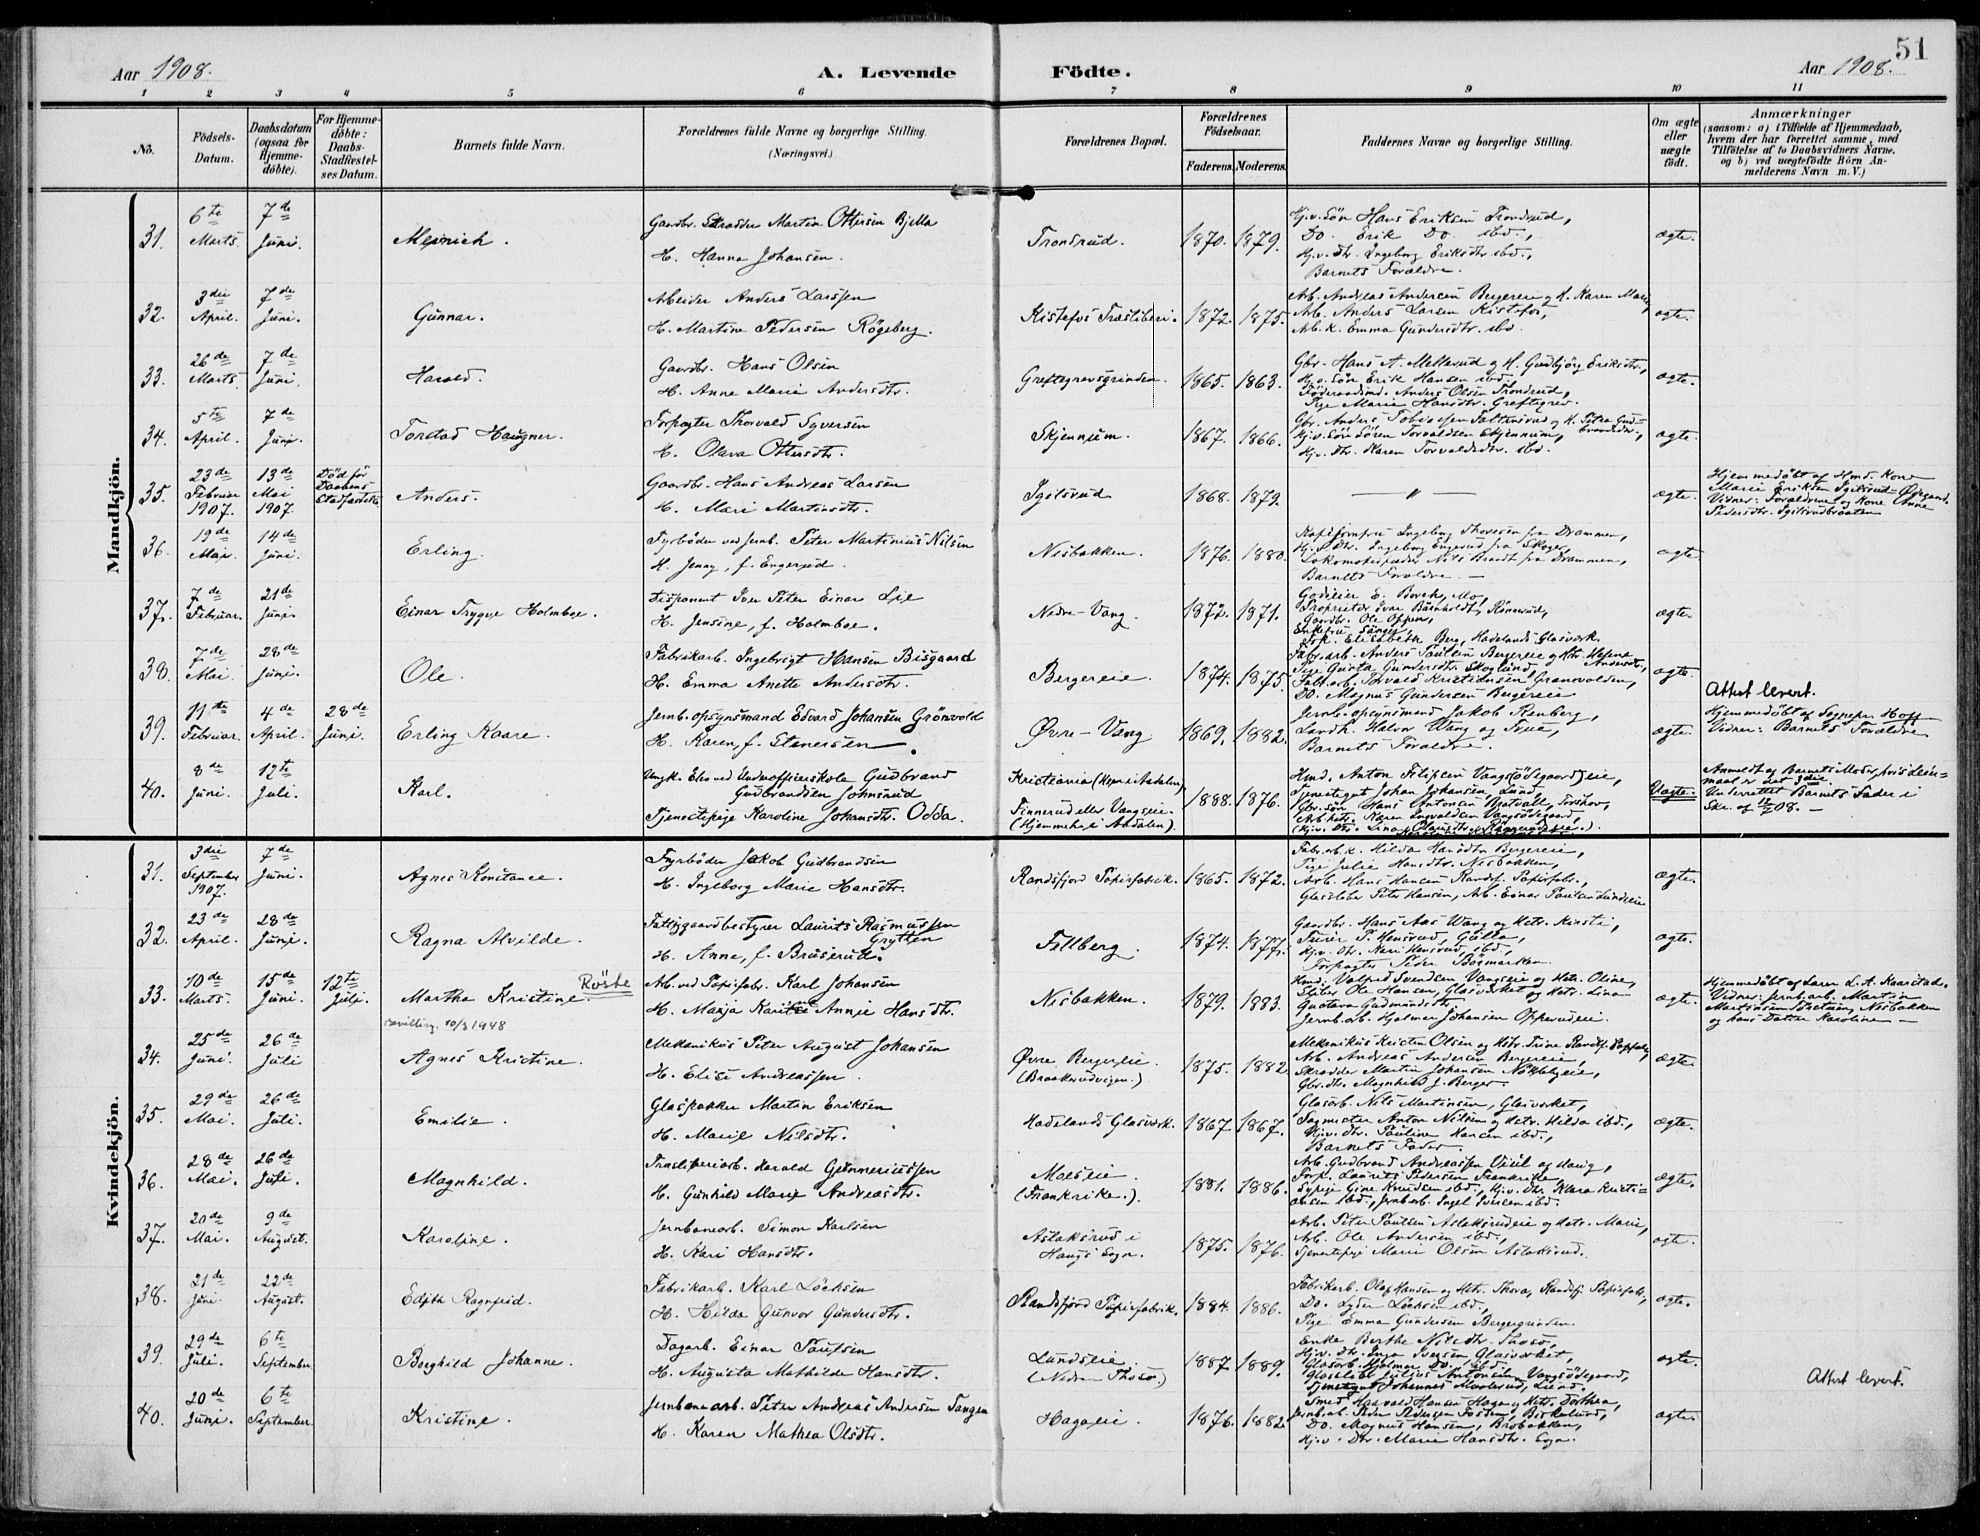 51
Aar 1908.
A. Levende Födte.
Aar 1908.
1 2 3 4 5 6 7 8 9 10 11
No.
Födsels-Datum.
Daabsdatum (ogsaa for Hjemmedöbte).
For Hjemmedöbte: Daabs-Stadfæstelses Datum.
Barnets fulde Navn.
Forældrenes fulde Navne og borgerlige Stilling.
(Næringsvei.)
Forældrenes Bopæl.
Forældrenes Födselsaar.
Faderens. Moderens.
Faddernes Navne og borgerlige Stilling.
Om ægte eller uægte födt.
Anmærkninger
(saasom: a) i Tilfælde af Hjemmedaab, hvem der har forrettet samme, med Tilföielse af to Daabsvidners Navne, og b) ved uægtefödte Börn Anmelderens Navn m. V.)
Mandkjön.
31. 6te Marts. 7de Juni. Meinich. Gaardbr. Skrædder Martin Ottersen Bjella
H. Hanna Johansen. Tronsrud. 1870. 1879. Hjv. Sön Hans Eriksen Tronsrud,
Do. Erik Do. ibd.,
Hjv. Dtr. Ingeborg Eriksdtr ibd.,
Barnets Forældre. ægte.
32. 3die April. 7de Juni. Gunnar. Arbeider Anders Larssen
H. Martine Pedersen Rögeberg. Kistefos Træsliberi. 1872. 1875. Arb. Andreas Andersen Bergereie og H. Karen Marie,
Arb. Anders Larsen Kistefos,
Arb. K. Emma Gundersdtr. ibd. ægte.
33. 26de Marts. 7de Juni. Harald. Gaardbr. Hans Olsen
H. Anne Marie Andersdtr. Greftegrevsgrinden. 1865. 1863. Gbr. Hans A. Mellerud og H. Gudbjörg Eriksdtr.,
Hjv. Sön Erik Hansen ibd.
Föderaadsmd. Anders Olsen Tronsrud,
Pige Marie Hansdtr. Greftegrev. ægte.
34. 5te April. 7de Juni. Torstad Haugner. Forpagter Thorvald Syversen
H. Olava Ottersdtr. Skjennum. 1867. 1866. Gbr. Anders Tobiassen og H. Petra Gudbrandsdtr.,
Hjv. Sön Sören Torvaldsen Skjennum,
Hjv. Dtr. Karen Torvaldsdtr. ibd. ægte.
35. 23de Februar 1907. 13de Mai 1907. Död för Daabens Stadfæstelse Anders. Gaardbr. Hans Andreas Larsen
H. Mari Martinsdtr. Igelsrud 1868. 1873 — " — ægte. Hjemmedöbt af Hmd. Kone
Marie Eriksen
Vidner: Forældrene og Kone Anne
Pedersdtr. Igelsrudbraaten
36. 19de Mai. 14de Juni. Erling. Fyrböder ved Jernb. Peter Martinius Nilsen
H. Jenny, f. Engerud. Nesbakken. 1876. 1880. Ingeborg Thoresen fra Drammen,
Hjv. Dtr. Ingeborg Engerud fra Skoger,
Nils Brandt fra Drammen,
Barnets Forældre. — ægte
37. 7de Februar. 21de Juni. Einar Trygve Holmboe. Disponent Iver Peter Einar Lie
H. Jensine, f. Holmboe. Nedre-Vang. 1872. 1871. Godseier E. Borch, Mo,
Proprietær Ivar Bærholdt, Rönnerud,
Gaardbr. Ole Oppen,
Enkefru Sanger,
Frk. Elisabeth Berg, Hadelands Glasværk. ægte.
38. 7de Mai. 28de Juni. Ole. Fabrikarb. Ingebrigt Hansen Bisgaard
H. Emma Anette Andersdtr. Bergereie. 1874. 1875. Fabr.arb. Anders Paulsen Bergereie og Hstr. Helene Andersdtr.,
Pige Gusta Gundersdtr. Skoglund,
Fabr.arb. Torvald Kristiansen Granevolden,
Do. Magnus Gundersen Bergereie ægte.
Attest levert.
39. 11te Februar. 4de April. 28de Juni. Erling Kaare. Jernb. opsynsmand Edvard Johansen Grönvold
H. Karen, f. Stenersen. Övre-Vang 1869. 1882. Jernb. opsynsmand Jakob Renberg,
Landh. Halvor Wang og Frue,
Barnets Forældre. ægte. Hjemmedöbt af Sognepr. Hoff
Vidner: Barnets Forældre
40. 8de Juni. 12te Juli. Karl. Ungk. Elev ved Underofficerskole Gudbrand
Gudbrandsen Johnsrud
Tjenestepige Karoline Johansdtr. Odda. Kristiania (Hjem i Aadalen)
Finnerud eller Vangseie.
(Hjemmeh. i Aadalen). 1888. 1876. Hmd. Anton Filipsen Vangsödegaardseie,
Tjenestegut Johan Johansen Lund,
Gbr. sön Hans Antonsen Bratvall, Torshov,
Arb. Hstr. Karen Ingvaldsen Vangsödegaard, Uægte. Anmeldt af Barnets Moder, hvis Leiermaal er det 3die
Underrettet Barnets Fader i
Skr. af 14/7 08. —
Kvindekjön.
31. 3die September 1907. 7de Juni. Agnes Konstance. Fyrböder Jakob Gudbrandsen
H. Ingeborg Marie Hansdtr. Randsfjord Papirfabrik. 1865. 1872. Fabr. arb. k. Hilda Hansdtr. Bergereie,
Pige Julie Hansdtr. Nesbakken,
Arb. Hans Hansen Randsf. Papirfab.,
Glassliber Peter Hansen, Arb. Einar Paulsen Lundseie ægte.
32. 23de April. 28de Juni. Ragna Alvilde. Fattiggaardbestyrer Laurits Rasmussen Grytten
H. Anne, f. Bruserud. Fellberg. 1874. 1877. Gaardbr. Hans Aas Wang og Hstr. Kirsti,
P. Hensrud, Gulla,
Hjv. Dtr. Mari Hensrud, ibd.,
Forpagter Peder Börmarken. ægte.
33. 10de Marts. 15de Juni. 12te Juli. Martha Kristine. Röste
bevilling. 10/3 1948
Arb. ved Papirfabr. Karl Johansen
H. Marja Karitse Annie Hansdtr. Nesbakken. 1879. 1883. Hmd. Valfred Svendsen Vangseie og Hstr. Oline,
Sliber Ole Hansen, Glasværket og Hstr. Lina
Gustava Gudmundsdtr.,
Jernb. arb. Hjalmar Johansen Opperudeie. ægte. Hjemmedöbt af Lærer L. A. Kaarstad.
Vidner: Jernb. arb. Martin
Martinsen Nesbakken
og hans Datter Karoline —
34. 25de Juni. 26de Juli Agnes Kristine. Mekanikus Peter August Johansen
H. Elise Andreassen. Övre Bergereie.
(Braakerudvigen.) 1875. 1882 Mekanikus Kristen Olsen og Hstr. Trine Randsf. Papfab.,
Arb. Andreas Andersen Bergereie,
Skrædder Martin Johansen Nökkebyeie,
Gbr. dtr. Magnhild J. Berger. ægte.
35. 29de Mai. 26de Juli. Emilie. Glaspakker Martin Eriksen
H. Marie Nilsdtr. Hadelands Glasværk. 1867 1867. Glasarb. Nils Martinsen, Glasværket,
Sagmester Anton Nilsen og Hstr. Hilda ibd.,
Hjv. dtr. Pauline Hansen ibd.,
Barnets Fader. ægte.
36. 28de Mai. 26de Juli. Magnhild. Træsliperiarb. Harald Gunneriussen
H. Gunhild Marie Andreasdtr. Moeseie
(Frankrike.). 1881. 1886. Arb. Gudbrand Andreassen
Laurits Pedersen Frankrike
Sypige Gine Knudsen ibd., Hjv. Dtr. Klara Kristiansen ibd., Jernb.arb. Ingel Iversen ibd. ægte.
37. 20de Mai. 9de August. Karoline. Jernbanearb. Simon Karlsen
H. Kari Hansdtr. Aslaksrud i
Haugs Sogn. 1875. 1876. Arb. Peter Paulsen Aslaksrudeie og Hstr. Marie,
Arb. Ole Andersen ibd.,
Tjenestepige Marie Olsen Aslaksrud. ægte.
38. 21de Juni. 22de August. Edith Ragnfrid. Fabrikarb. Karl Löchsen
H. Hilda Gunvor Gundersdtr. Randsfjord Papirfabrik. 1884. 1886. Fabrikarb. Olaf Hansen og Hstr. Thora, Randsfj. Papirfab.,
Do. Lyder Löchsen ibd.,
Pige Emma Gundersen Bergergrinden. ægte.
39. 29de Juli. 6te September. Borghild Johanne. Dagarb. Einar Paulsen
H. Augusta Mathilde Hansdtr. Lundseie.
(Nedre Thoso.) 1887 1889. Enke Berthe Nilsdtr. Thoso,
Hjv. Dtr. Inga Iversen Glasværket,
Glasarb. Hjalmar Do. ibd.
Julius Antonsen Vangsödegaard,
Tjenestegut Johannes Lund. ægte. Attest levert.
40. 20de Juni. 6te September. Kristine. Jernbanearb. Peter Andreas Andersen Tangen
H. Karen Mathea Olsdtr. Hagaeie. 1876. 1882. Smed Haavald Hansen Haga og Hstr. Dorthea,
Jernb.arb. Peder Pedersen
Do. Magnus Hansen, Brobakken,
Hjv. Dtr. Marie Hansdtr. ægte.